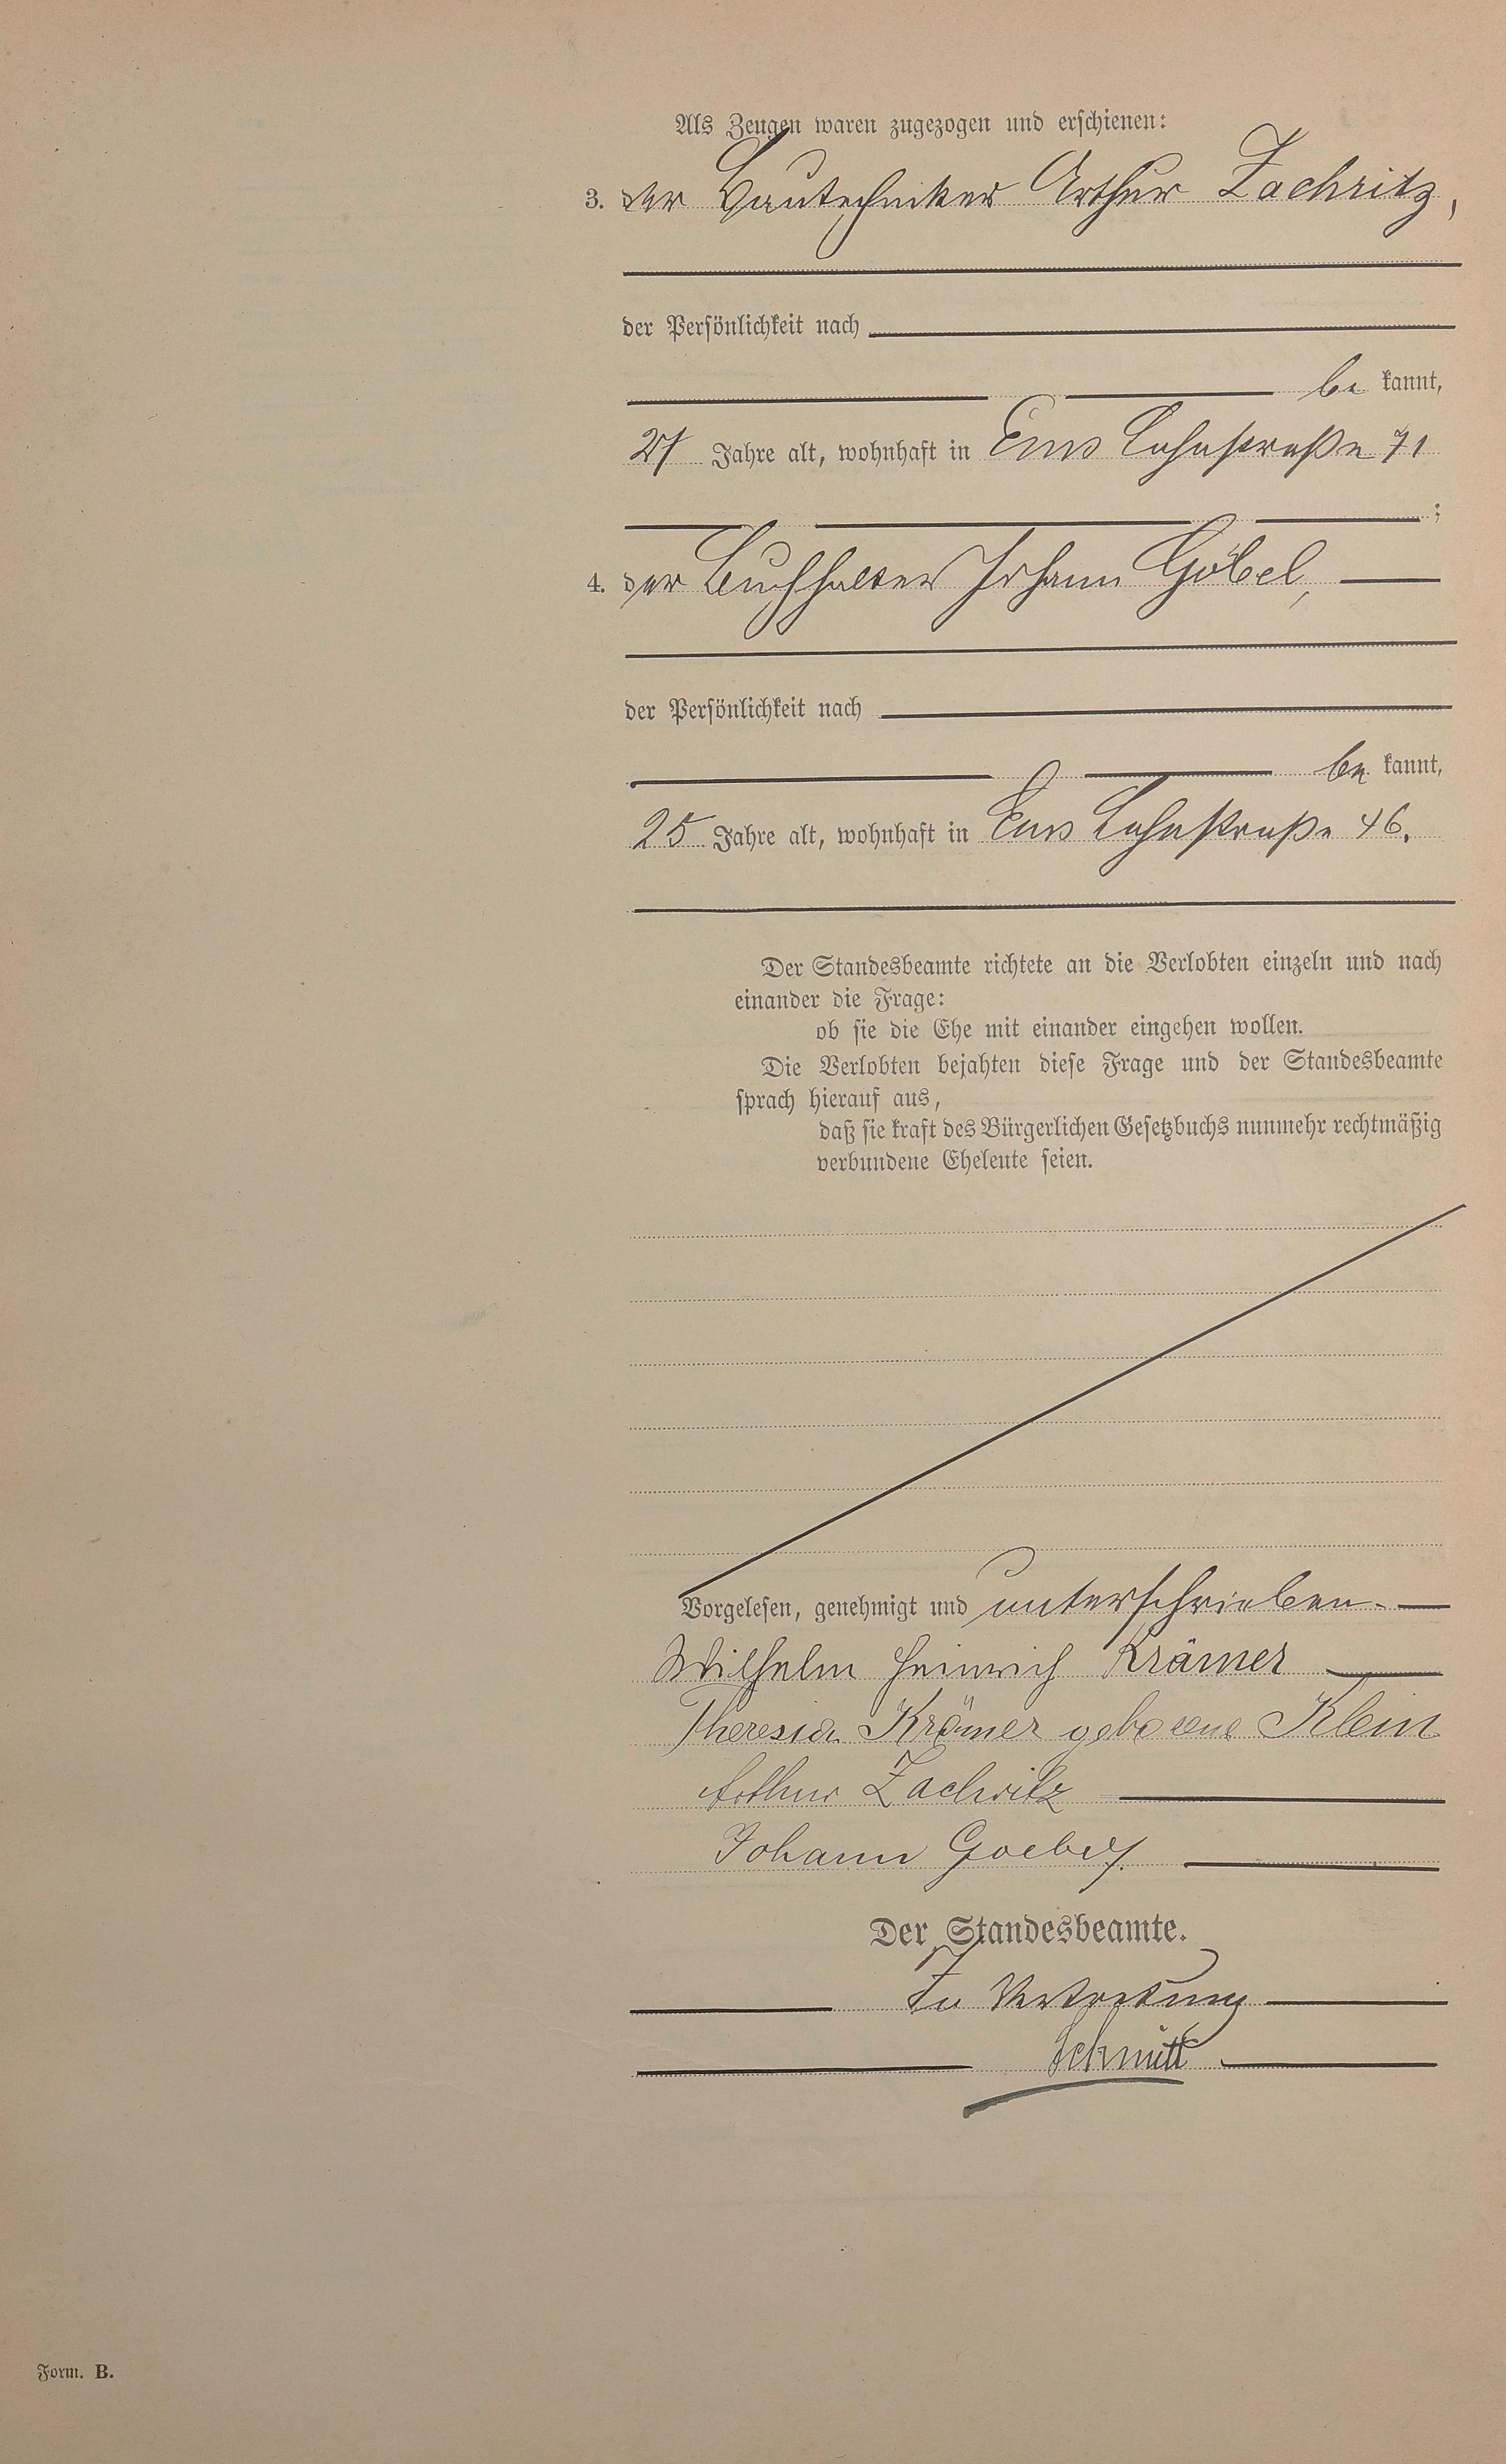 Als Zeugen waren zugezogen und erschienen:
3. der Bautechniker Arthur Zachritz,
der Persönlichkeit nach
be kannt,
Jahre alt, wohnhaft in Ems Lahnstraße 71
;
4. der Buchhalter Johann Göbel,
der Persönlichkeit nach
be kannt,
25 Jahre alt, wohnhaft in Ems Lahnstraße 46.
Der Standesbeamte richtete an die Verlobten einzeln und nach
einander die Frage:
ob sie die Ehe mit einander eingehen wollen.
Die Verlobten bejahten diese Frage und der Standesbeamte
sprach hierauf aus,
daß sie kraft des Bürgerlichen Gesetzbuchs nunmehr rechtmäßig
verbundene Eheleute seien.
Vorgelesen, genehmigt und unterschrieben.
Wilhelm Heinrich Krämer
Theresia Krämer geborene Klein
Arthur Zachritz
Johann Goebel.
Der Standesbeamte.
In Vertretung
Schmitt
Form. B.